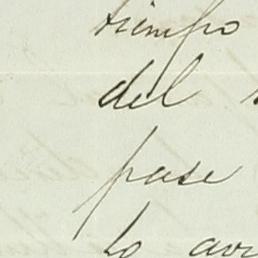 tiempo
del
pase
lo